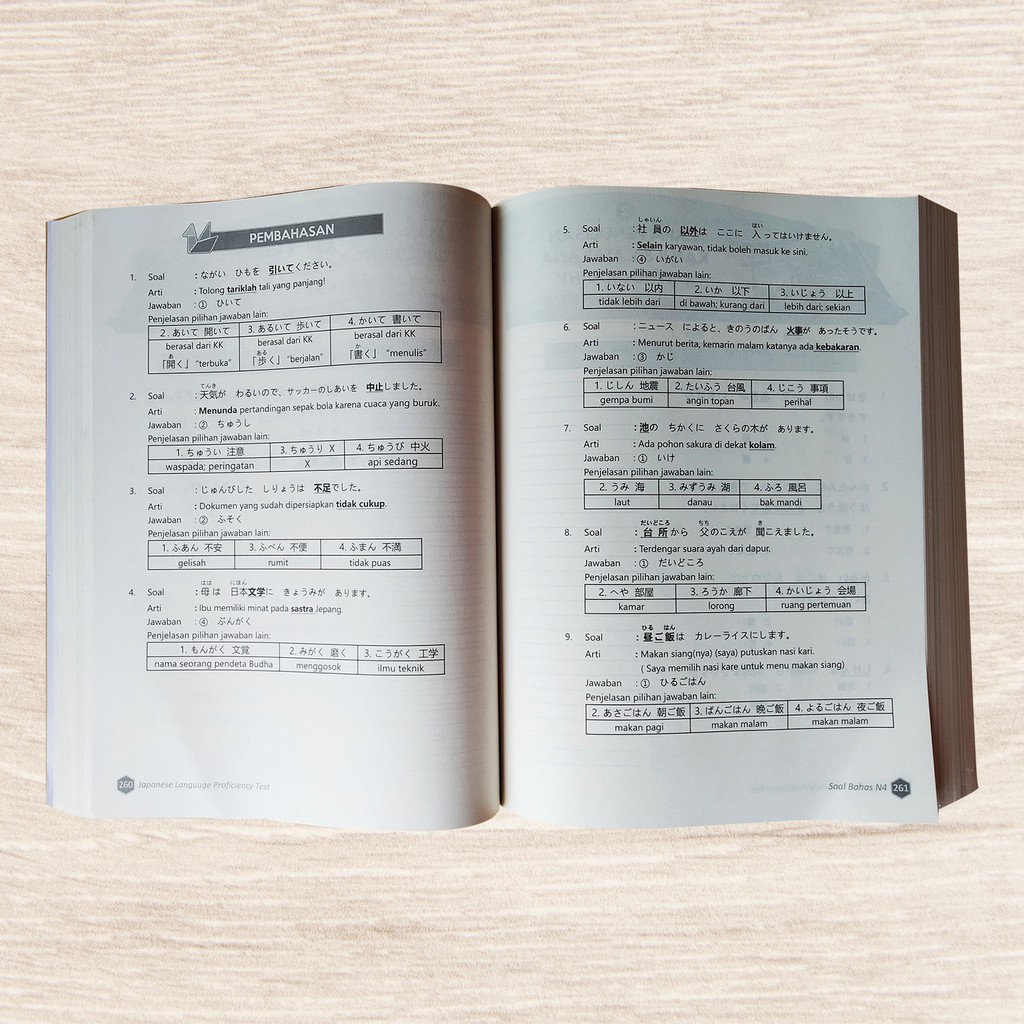 PEMBAHASAN
1. Soal : ながい ひもを 引いてください。
Arti : Tolong tariklah tali yang panjang!
Jawaban : ① ひいて
Penjelasan pilihan jawaban lain:
2. あいて 開いて 3. あるいて 歩いて 4. かいて 書いて
berasal dari KK berasal dari KK berasal dari KK
あ ある か
「開く」 “terbuka” 「歩く」 “berjalan” 「書く」 “menulis”
てんき
2. Soal : 天気が わるいので、サッカーのしあいを 中止しました。
Arti : Menunda pertandingan sepak bola karena cuaca yang buruk.
Jawaban : ② ちゅうし
Penjelasan pilihan jawaban lain:
1. ちゅうい 注意 3. ちゅうり X 4. ちゅうび 中火
waspada; peringatan X api sedang
3. Soal : じゅんびした しりょうは 不足でした。
Arti : Dokumen yang sudah dipersiapkan tidak cukup.
Jawaban : ② ふそく
Penjelasan pilihan jawaban lain:
1. ふあん 不安 3. ふべん 不便 4. ふまん 不満
gelisah rumit tidak puas
はは にほん
4. Soal : 母は 日本文学に きょうみが あります。
Arti : Ibu memiliki minat pada sastra Jepang.
Jawaban : ④ ぶんがく
Penjelasan pilihan jawaban lain:
1. もんがく 文覚 2. みがく 磨く 3. こうがく 工学
nama seorang pendeta Budha menggosok ilmu teknik
260 Japanese Language Proficiency Test
しゃいん はい
5. Soal : 社員の 以外は ここに 入ってはいけません。
Arti : Selain karyawan, tidak boleh masuk ke sini.
Jawaban : ④ いがい
Penjelasan pilihan jawaban lain:
1. いない 以内 2. いか 以下 3. いじょう 以上
tidak lebih dari di bawah; kurang dari lebih dari; sekian
6. Soal : ニュース によると、きのうのばん 火事が あったそうです。
Arti : Menurut berita, kemarin malam katanya ada kebakaran.
Jawaban : ③ かじ
Penjelasan pilihan jawaban lain:
1. じしん 地震 2. たいふう 台風 4. じこう 事項
gempa bumi angin topan perihal
7. Soal : 池の ちかくに さくらの木が あります。
Arti : Ada pohon sakura di dekat kolam.
Jawaban : ① いけ
Penjelasan pilihan jawaban lain:
2. うみ 海 3. みずうみ 湖 4. ふろ 風呂
laut danau bak mandi
だいどころ ちち き
8. Soal : 台所から 父のこえが 聞こえました。
Arti : Terdengar suara ayah dari dapur.
Jawaban : ① だいどころ
Penjelasan pilihan jawaban lain:
2. へや 部屋 3. ろうか 廊下 4. かいじょう 会場
kamar lorong ruang pertemuan
ひる はん
9. Soal : 昼ご飯は カレーライスにします。
Arti : Makan siang(nya) (saya) putuskan nasi kari.
( Saya memilih nasi kare untuk menu makan siang)
Jawaban : ① ひるごはん
Penjelasan pilihan jawaban lain:
2. あさごはん 朝ご飯 3. ばんごはん 晩ご飯 4. よるごはん 夜ご飯
makan pagi makan malam makan malam
Soal Bahas N4 261